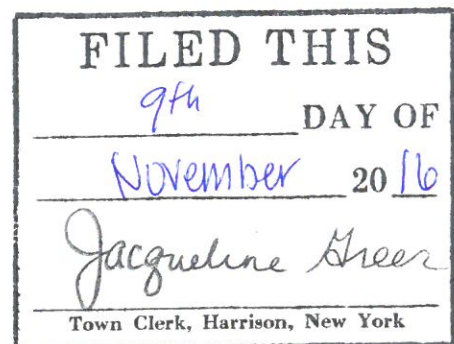 FILED THIS
9th
DAY OF
November 20 16
Jacqueline Greer
Town Clerk, Harrison, New York